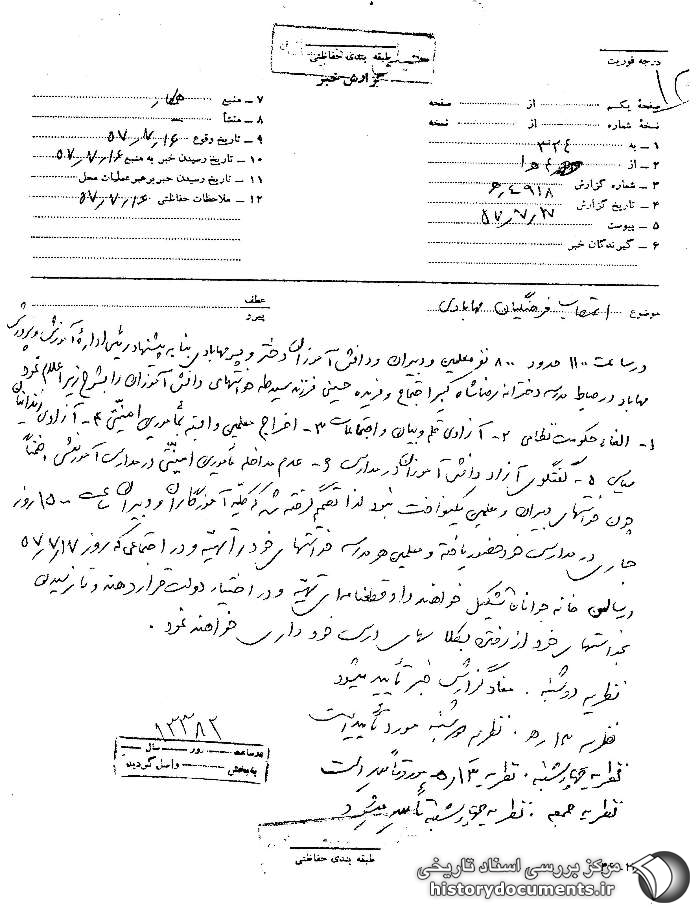 طبقه بندی حفاظتی
گزارش خبر
درجه فوریت
صفحهٔ یکم از صفحه
نسخهٔ شماره از نسخه
۱ – به ۳۲۴
۲ – از
۳ – شماره گزارش
۴ – تاریخ گزارش ۵۷/۷/۱۷
۵ – پیوست
۶ – گیرندگان خبر
۷ – منبع همکار
۸ – منشأ
۹ – تاریخ وقوع ۵۷/۷/۱۶
۱۰ – تاریخ رسیدن خبر به منبع ۵۷/۷/۱۶
۱۱ – تاریخ رسیدن خبر برهبر عملیات محل
۱۲ – ملاحظات حفاظتی ۵۷/۷/۱۶
موضوع اعتصاب فرهنگیان مهابادی
عطف
پیرو
در ساعت ۱۱۰۰ حدود ۸۰۰ نفر معلمین و دبیران و دانش آموزان دختر و پسر مهابادی بنا به پیشنهاد رئیس اداره آموزش و پرورش
مهاباد در حیاط مدرسه دخترانه رضاشاه کبیر اجتماع و فریده حسینی فرزند سید طه خواسته‌های دانش آموزان را بشرح زیر اعلام نمود
۱- الغاء حکومت نظامی ۲- آزادی قلم و بیان و اجتماعات ۳- اخراج معلمین وابسته بمأمورین امنیتی ۴- آزادی زندانیان
سیاسی ۵- گفتگوی آزاد دانش آموزان در مدارس ۶- عدم مداخله مأمورین امنیتی در مدارس آموزشی ضمناً
چون خواستهای دبیران و معلمین یکنواخت نبود لذا تصمیم گرفته شد که کلیه آموزگاران و دبیران ساعت ۱۵۰۰ روز
جاری در مدارس خود حضور یافته و معلمین هر مدرسه خواستهای خود را تهیه و در اجتماعی که روز ۵۷/۷/۱۷
در سالن خانه جوانان تشکیل خواهند داد قطعنامه‌ای تهیه و در اختیار دولت قرار دهند و تا نرسیدن
بخواستهای خود از رفتن بکلاسهای درس خودداری خواهند نمود.
نظریه دوشنبه. مفاد گزارش خبر تأیید میشود
نظریه سه‌شنبه مورد تأیید است
نظریه چهارشنبه. نظریه مورد تأیید است
نظریه جمعه. نظریه چهارشنبه تأیید میشود
۱۳۳۸۲
در ساعت روز سال
به بخش واصل گردید
طبقه بندی حفاظتی
مرکز بررسی اسناد تاریخی
historydocuments.ir